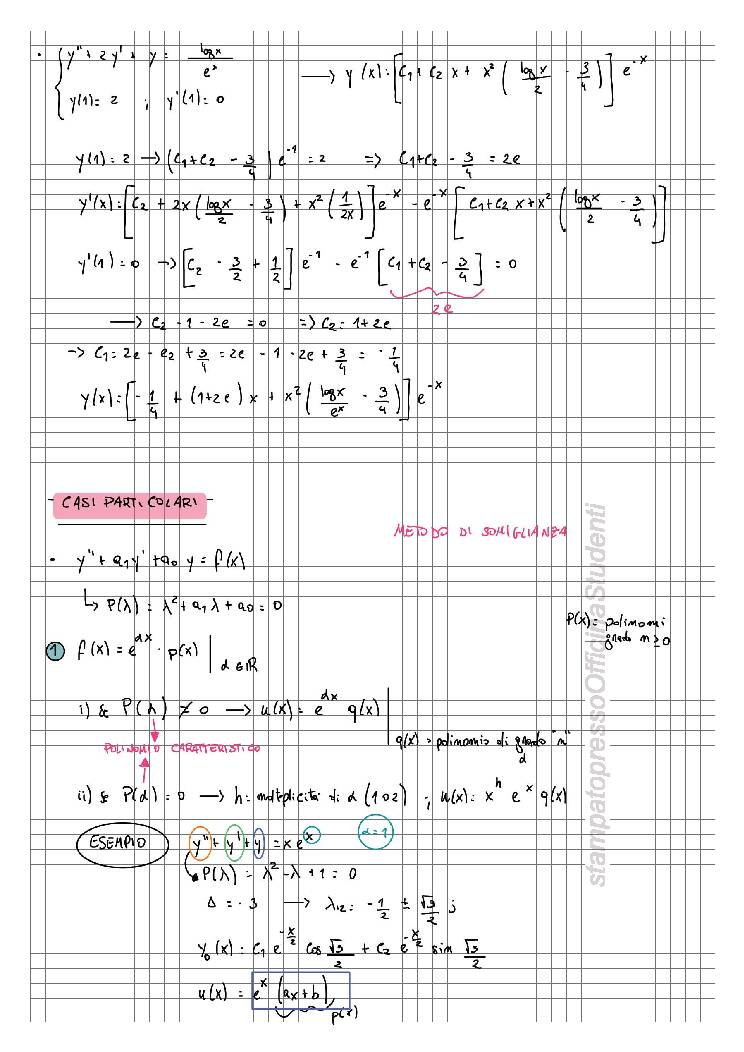 · { y'' + 2y' + y = logx / eˣ ⟶ y(x) = [c₁ + c₂x + x² (logx/2 - 3/4)] e⁻ˣ
y(1) = 2 ; y'(1) = 0
y(1) = 2 → (c₁+c₂ - 3/4) e⁻¹ = 2 => c₁+c₂ - 3/4 = 2e
y'(x) = [c₂ + 2x (logx/2 - 3/4) + x² (1/2x)] e⁻ˣ - e⁻ˣ [c₁+c₂x+x² (logx/2 - 3/4)]
y'(1) = 0 → [c₂ - 3/2 + 1/2] e⁻¹ - e⁻¹ [c₁+c₂ - 3/4] = 0
2e
⟶ c₂ - 1 - 2e = 0 => c₂ = 1+2e
→ c₁ = 2e - c₂ + 3/4 = 2e - 1 - 2e + 3/4 = -1/4
y(x) = [-1/4 + (1+2e)x + x² (logx/eˣ - 3/4)] e⁻ˣ
CASI PARTICOLARI
METODO DI SOMIGLIANZA
· y'' + a₁y' + a₀y = f(x)
↳ P(λ) = λ² + a₁λ + a₀ = 0
P(x) = polinomi
grado n ≥ 0
1 f(x) = e^αx · p(x) | α ∈ ℝ
i) se P(λ) ≠ 0 ⟶ u(x) = e^αx q(x) |
q(x) = polinomio di grado "n"
α
POLINOMIO CARATTERISTICO
ii) se P(α) = 0 ⟶ h = molteplicità di α (1 o 2) ; u(x) = xʰ eˣ q(x)
ESEMPIO y'' + y' + y = x eˣ α=1
P(λ) = λ² - λ + 1 = 0
Δ = -3 ⟶ λ₁₂ = -1/2 ± √3/2 j
y₀(x) = c₁ e^(-x/2) cos √3/2 + c₂ e^(-x/2) sin √3/2
u(x) = eˣ (ax+b)
p(x)
stampatopressoOfficinaStudenti